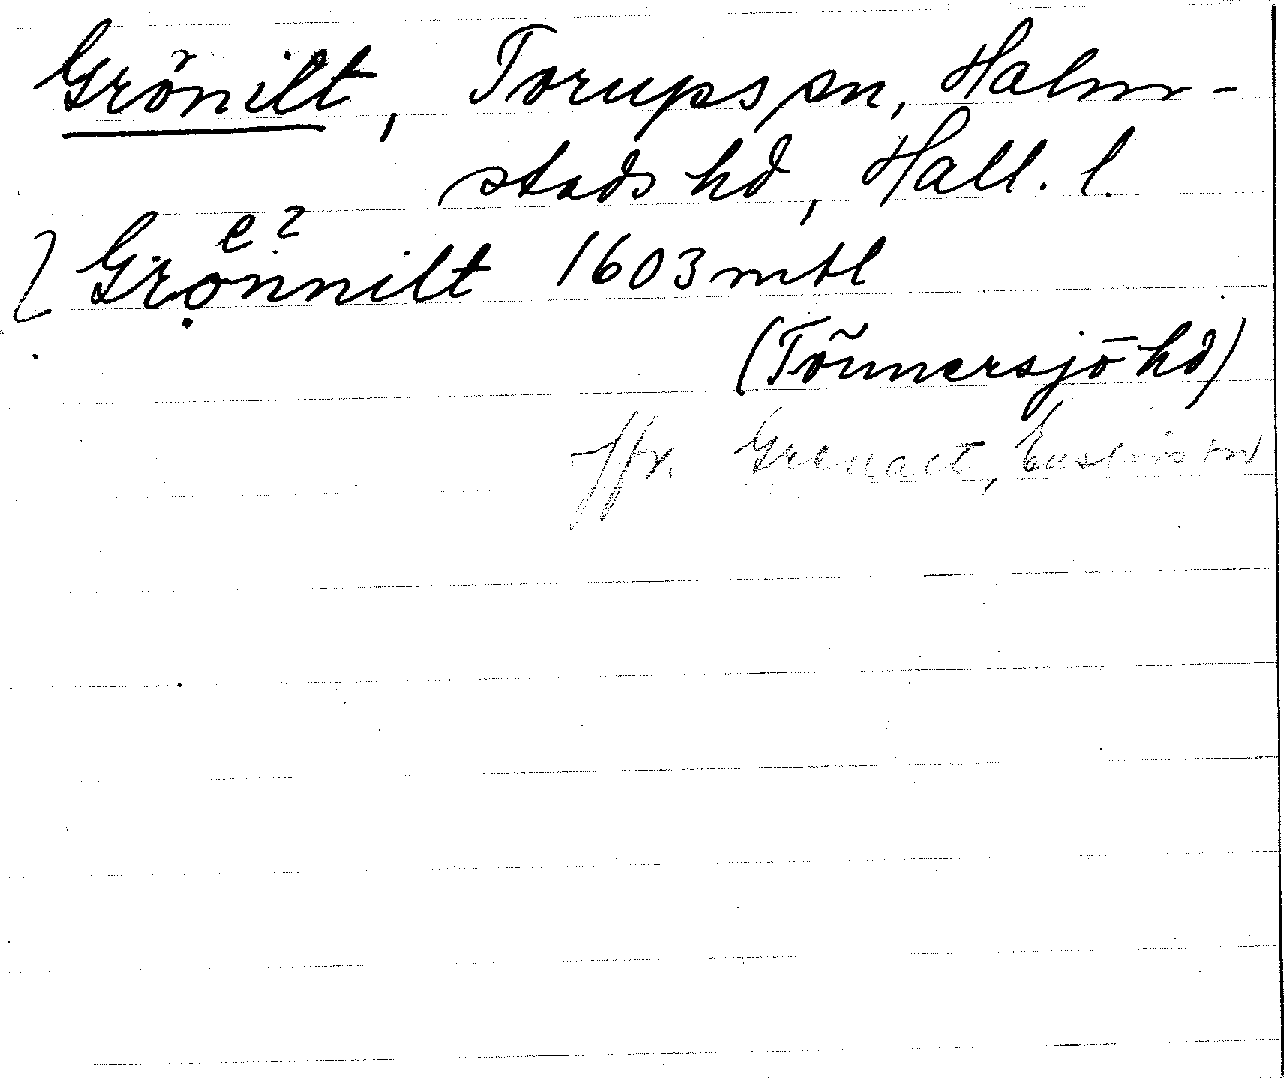 Grönilt, Torups sn, Halm-
stads hd, Hall. l.
e?
Grönnilt 1603 mtl
(Tönnersjö hd)
Jfr.